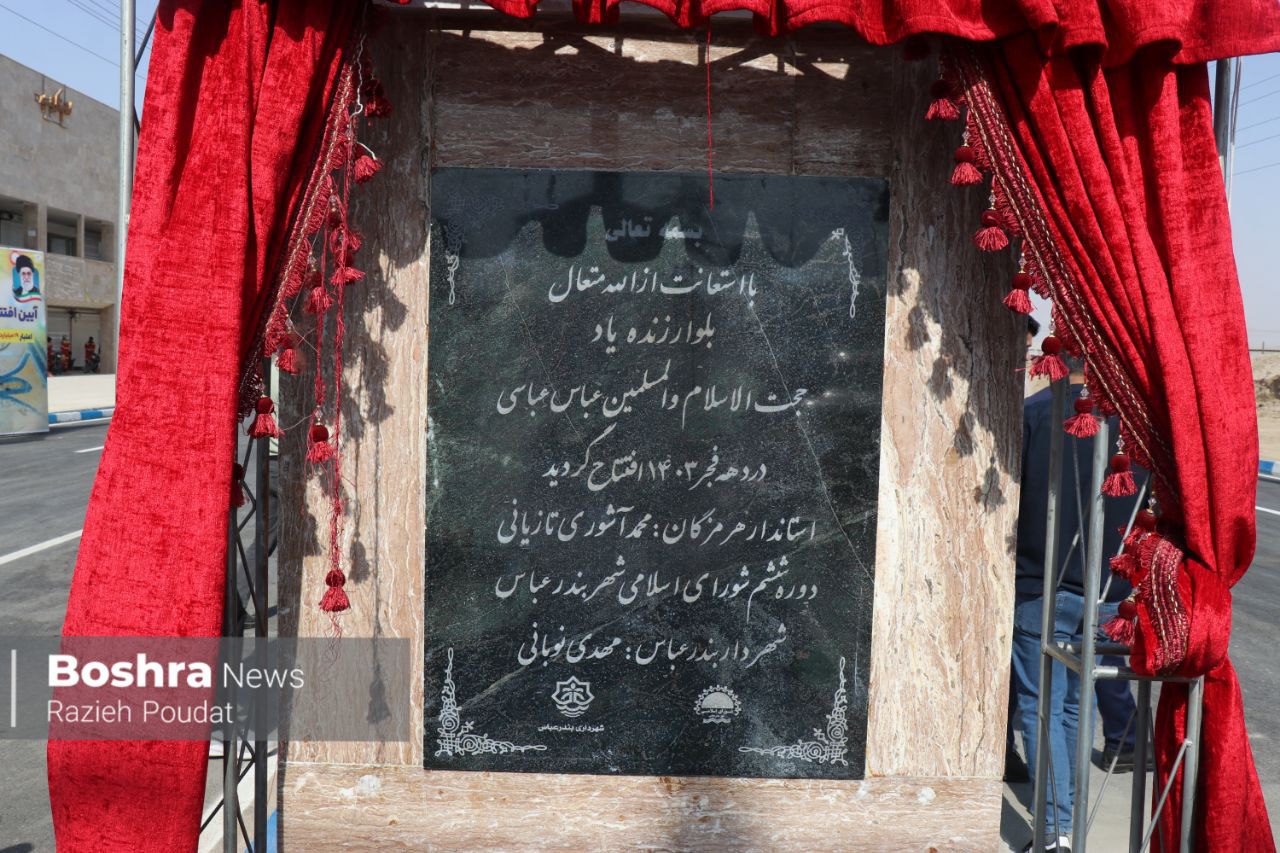 بسمه تعالی
با استعانت از الله متعال
بلوار زنده یاد
حجت الاسلام والمسلمین عباس عباسی
در دهه فجر ۱۴۰۳ افتتاح گردید
استاندار هرمزگان : محمد آشوری تازیانی
دوره ششم شورای اسلامی شهر بندرعباس
شهردار بندرعباس : مهدی نوبانی
شهرداری بندرعباس
آیین افتتا
Boshra News
Razieh Poudat